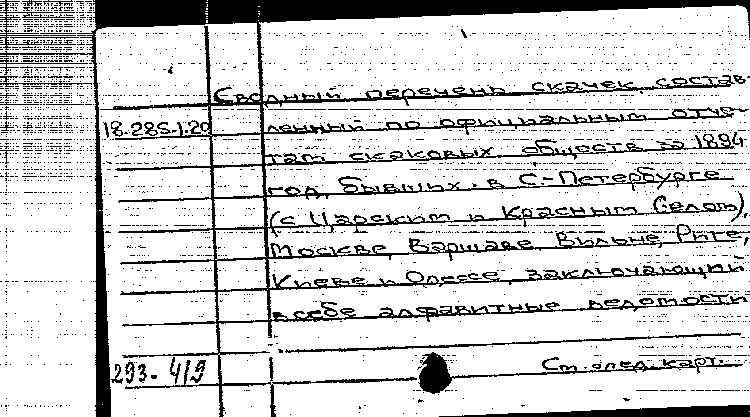 Сводный перечень скачек, состав-
18.285.1.20 ленный по официальным отче-
там скаковых обществ за 1894
год, бывших в С.-Петербурге
(с Царским и Красным Селом),
Москве, Варшаве, Вильне, Риге,
Киеве и Одессе, заключающий
в себе алфавитные ведомости
293-419 См. след. карт.